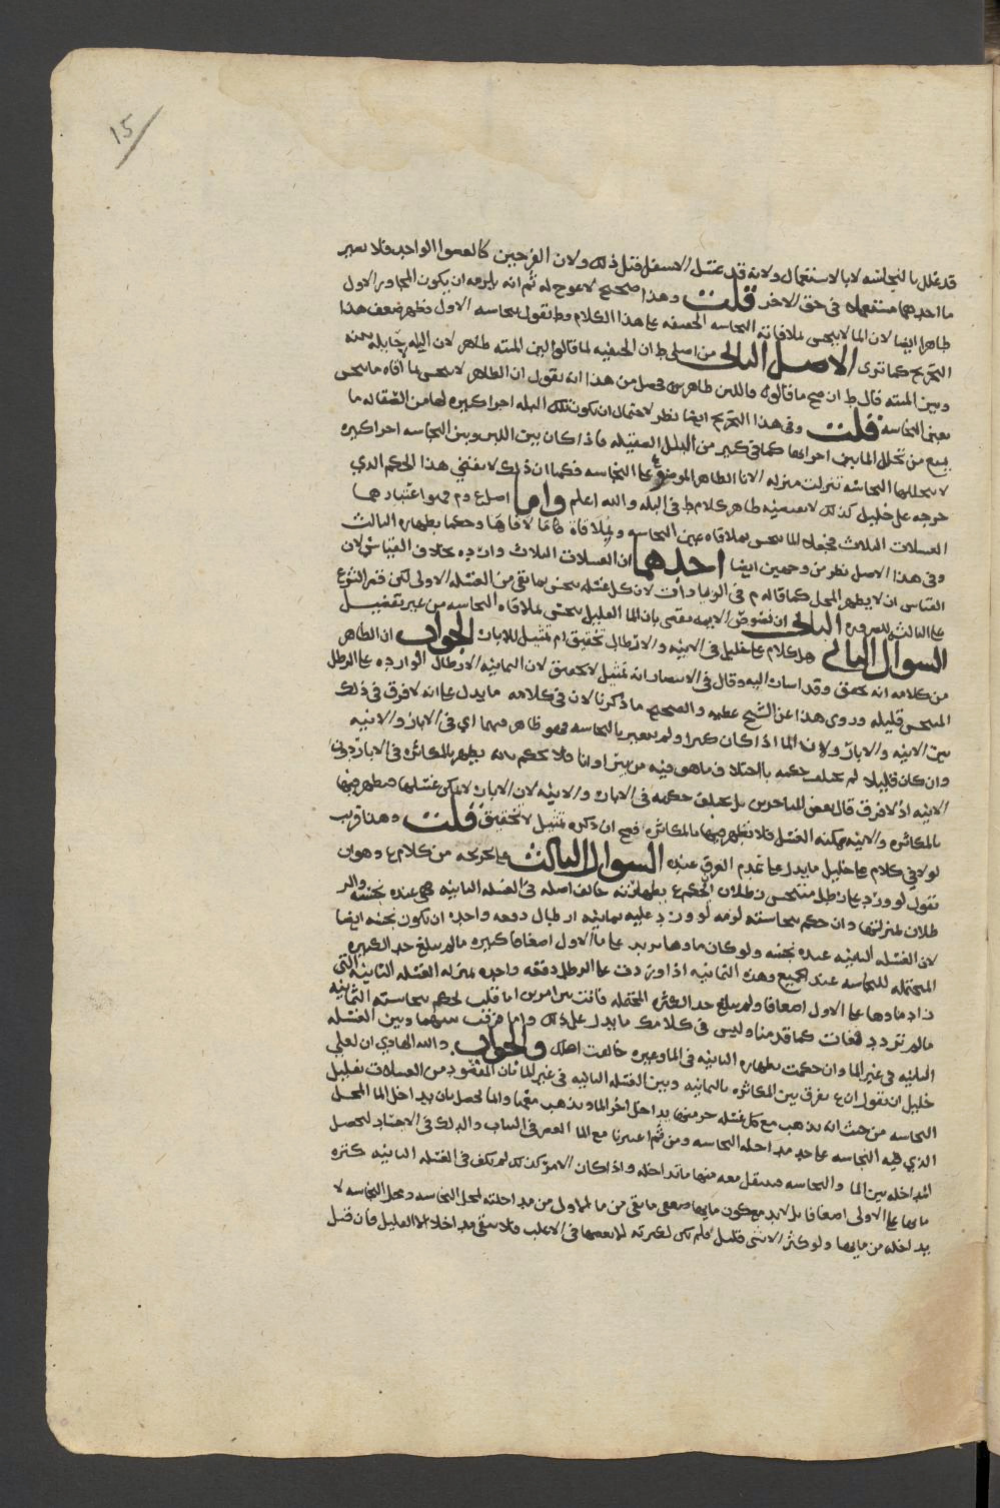 15
قد علل بالنجاسه لا بالاستعمال ولانه قد غسل الاسفل قبل ذلك ولان الفرجين كالعضو الواحد فلا يصير
ما احدهما مستعملا في حق الاخر قلت وهذا صحيح لا عوج له ثم انه يلزمه ان يكون المجاور الاول
طاهرا ايضا لان الما لا ينجس بملاقاة النجاسه الخفيفه على هذا الكلام وط يقول بنجاسه الاول فظهر ضعف هذا
التخريج كما ترى الاصل الثاني من اصلي ط ان الحنفيه لما قالوا لبن الميته طاهر لان البله حايله بينه
وبين الميته قال ط ان صح ما قالوه واللبن طاهر حصل من هذا انه يقول ان الطاهر لا ينجس بما لاقاه ما ينجس
بعين النجاسه قلت وفي هذا التخريج ايضا نظر لاحتمال ان يكون تلك البله اجزا كثيره لها من الثقاله ما
يمنع من تخلل الما بين اجزائها كما في كثير من البلل الثقيله فاذا كان بين اللبن وبين النجاسه اجزا كثيره
لا يتخللها النجاسه تنزلت منزله الانا الطاهر الموضوع على النجاسه فكما ان ذلك لا يقتضي هذا الحكم الذي
خرجه علي خليل كذلك لا يقتضيه ظاهر كلام ط في البله والله اعلم واما اصل ع وم فهو اعتبارهما
الغسلات الثلاث فجعلا الما ينجس بملاقاه عين النجاسه وبملاقاة ما لاقاها وحكما بطهاره الثالث
وفي هذا الاصل نظر من وجهين ايضا احدهما ان الغسلات الثلاث وارده بخلاف القياس لان
القياس ان لا يطهر المحل كما قاله م في الزيادات لان كل غسله تنجس بما بقي من الغسله الاولى لكن قصر الشرع
على الثالث للضروره الثاني ان نصوص الايمه تقضي بان الما القليل ينجس بملاقاه النجاسه من غير تفصيل
السوال الثاني هل كلام علي خليل في الانيه والارطال تحقيق ام تمثيل للاباث الجواب ان الظاهر
من كلامه انه تحقيق وقد اشار اليه وقال في الانتصار انه تمثيل لا تحقيق لان الثمانيه الارطال الوارده على الرطل
المتنجس قليله وروى هذا عن الشيخ عطيه والصحيح ما ذكرنا لان في كلامه ما يدل على انه لا فرق في ذلك
بين الانيه والابار ولان الما اذا كان كثيرا ولم يتغير بالنجاسه فهو طاهر فيهما اي في الابار والانيه
وان كان قليلا لم يختلف حكمه باختلاف ما هو فيه من بير او انا فلا يحكم بانه يطهر بالمكاثره في الابار دون
الانيه اذ لا فرق قال بعض المتاخرين بل يختلف حكمه في الابار والانيه لان الابار لا يمكن غسلها فيطهر فيها
بالمكاثره والانيه يمكنه الغسل فلا تطهر فيها بالمكاثره فصح ان ذكره تمثيل لا تحقيق قلت وهذا قريب
لولا في كلام علي خليل ما يدل على عدم الفرق عنده السوال الثالث على تخريجه من كلام ع وهو ان
نقول لو ورد على رطل متنجس رطلان الحكم ع بطهارته خالف اصله في الغسله الثانيه فهي عنده نجسه والر
طلان بمنزلتها وان حكم بنجاسته لزمه لو ورد عليه ثمانيه ارطال دفعه واحده ان تكون نجسه ايضا
لان الغسله الثانيه عنده نجسه ولو كان ماوها يزيد على ما الاول اضعافا كثيره ما لم يبلغ حد الكثيره
المحتمله للنجاسه عند الجميع وهذه الثمانيه اذا وردت على الرطل دفعه واحده بمنزله الغسله الثانيه التي
زاد ماوها على الاول اضعافا ولم يبلغ حد الكثره المحتمله فانت بين امرين اما قلت يحكم بنجاسته الثمانيه
ما لم تتردد دفعات كما قدمنا وليس في كلامك ما يدل على ذلك واما فرقت بينهما وبين الغسله
الثانيه في غير الما وان حكمت بطهاره الثانيه في الما وغيره خالفت اصلك والجواب والله الهادي ان لعلي
خليل ان يقول ان ع يفرق بين المكاثره بالثمانيه وبين الغسله الثانيه في غير الما بان المقصود من الغسلات تقليل
النجاسه من حيث انه يذهب مع كل غسله جزء منها بداخل اجزا الما ويذهب معها وانما يحصل بان يداخل الما المحل
الذي فيه النجاسه على حد مداخله النجاسه ومن ثم اعتبرنا مع الما العصر في الثياب والدلك في الاجساد ليحصل
التداخل بين الما والنجاسه فينتقل معه منها ما تداخله واذا كان الامر كذلك لم يكف في الغسله الثانيه كثره
مايها على الاولى اضعافا بل لا بد مع كون مايها ضعف ما بقي من ما الاولى من مداخلته لمحل النجاسه ومحل النجاسه لا
يداخله من مايها ولو كثر الا شي قليل فلم يكن لكثرته لما بعضها في الاغلب فلا يبقى مداخلا الا القليل فان قيل